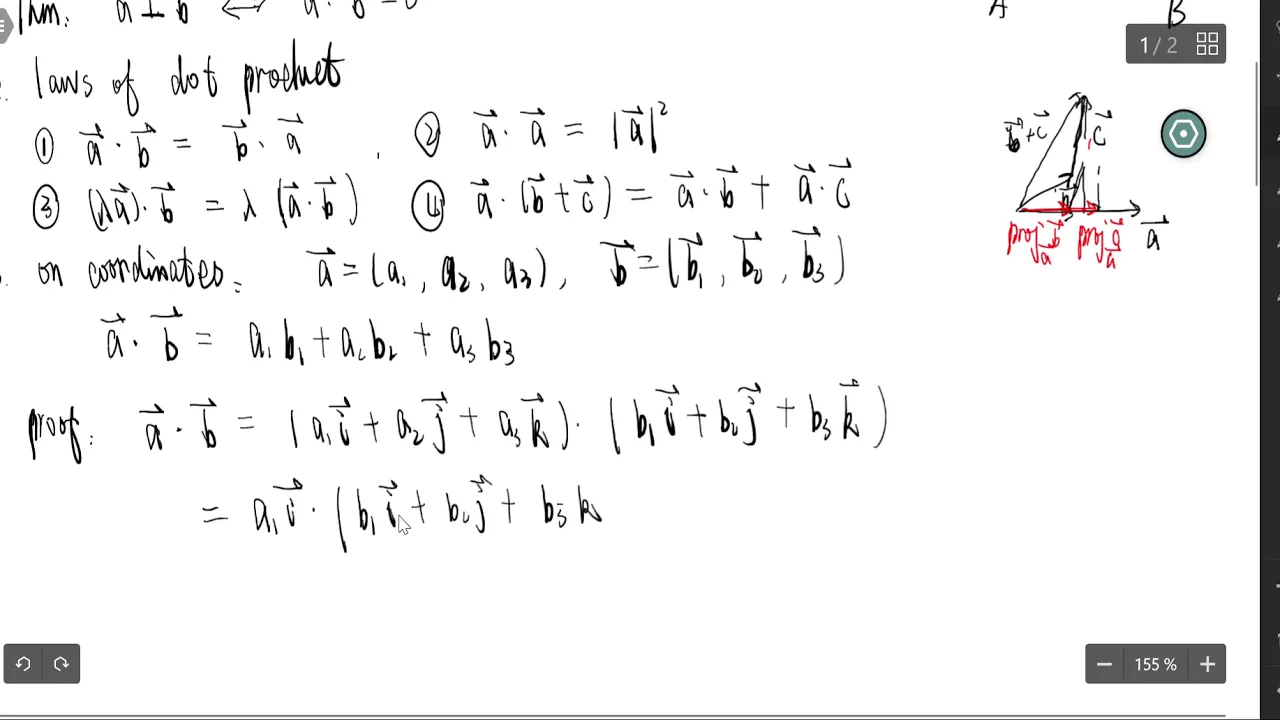 Thm: a⃗ ⊥ b⃗ ⟺ a⃗ · b⃗ = 0
A B
1 / 2
laws of dot product
① a⃗ · b⃗ = b⃗ · a⃗ . ② a⃗ · a⃗ = |a⃗|²
b⃗ + c⃗ c⃗
③ (λa⃗) · b⃗ = λ (a⃗ · b⃗) ④ a⃗ · (b⃗ + c⃗) = a⃗ · b⃗ + a⃗ · c⃗
b⃗ a⃗
proj_a⃗ b⃗ proj_a⃗
on coordinates: a⃗ = (a₁, a₂, a₃), b⃗ = (b⃗₁, b⃗₂, b⃗₃)
a⃗ · b⃗ = a₁b₁ + a₂b₂ + a₃b₃
proof: a⃗ · b⃗ = (a₁i⃗ + a₂j⃗ + a₃k⃗) · (b₁i⃗ + b₂j⃗ + b₃k⃗)
= a₁i⃗ · (b₁i⃗ + b₂j⃗ + b₃k
155 %